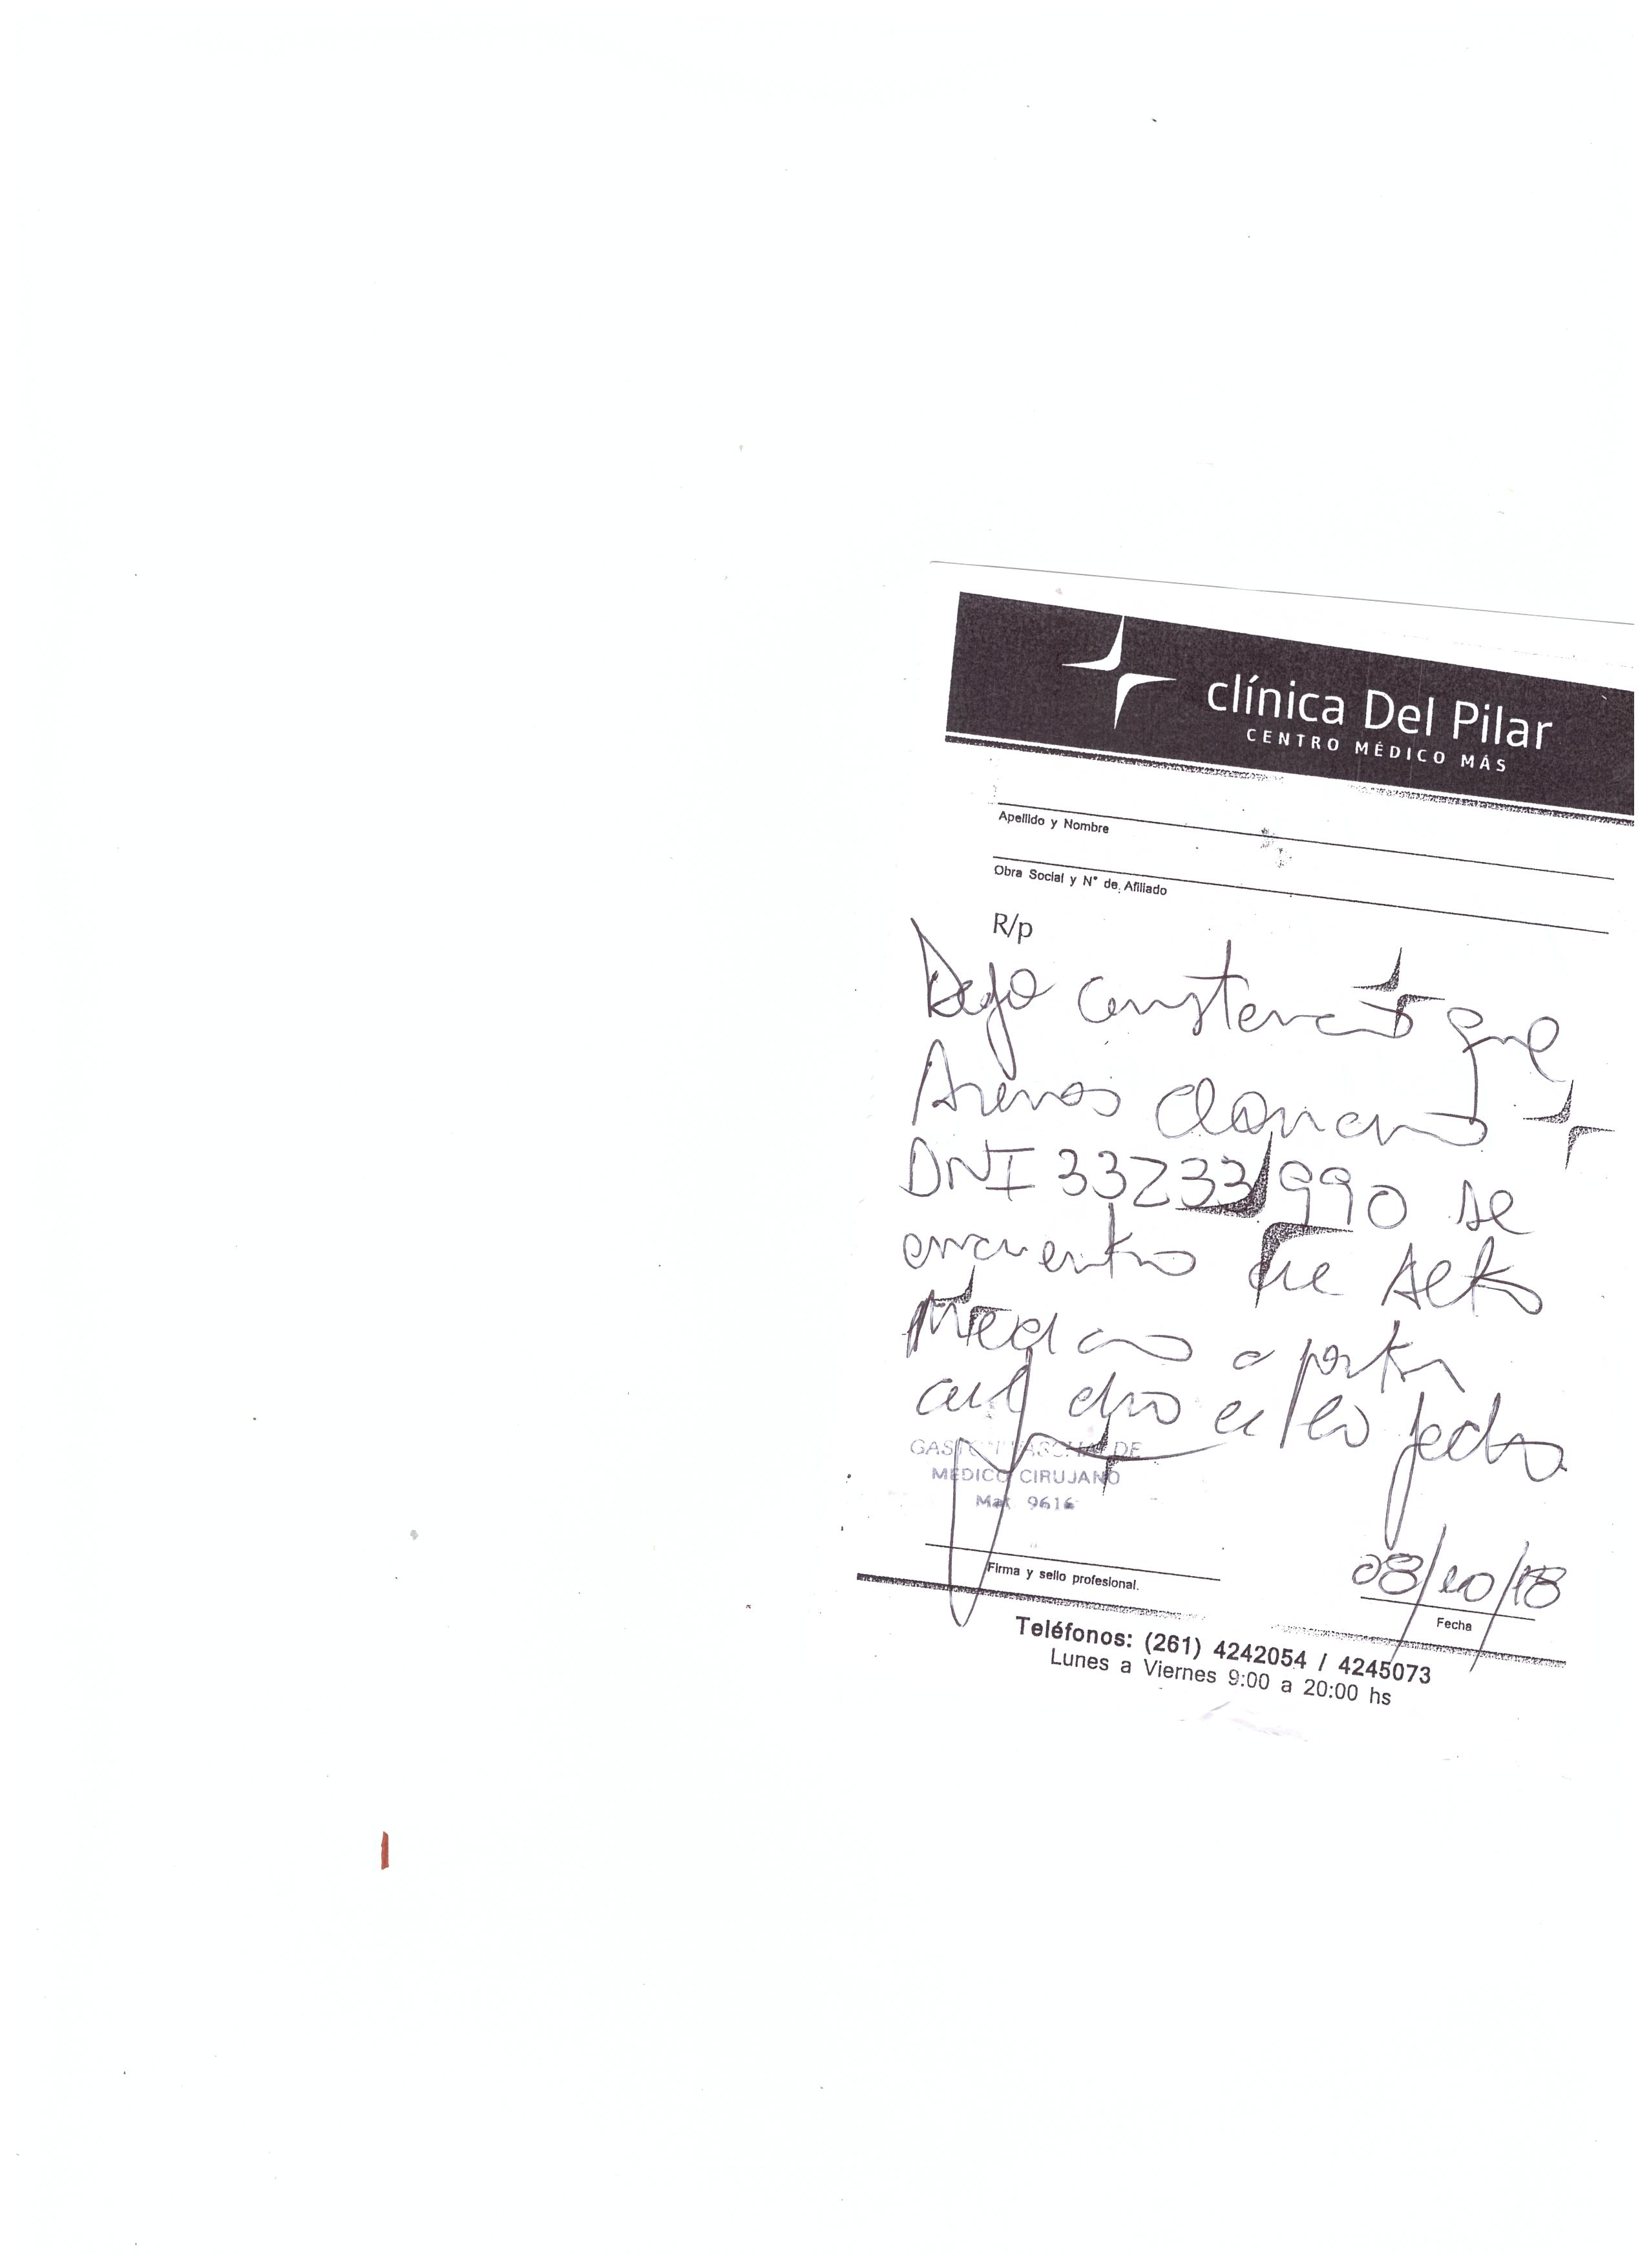 clínica Del Pilar
CENTRO MÉDICO MÁS
Apellido y Nombre
Obra Social y N° de Afiliado
R/p
Dejo constancia que
Arenas
DNI 33233990 se
encuentra de Alta
Medica a partir
del dia de la fecha
MEDICO CIRUJANO
Mat 9616
08/10/18
Firma y sello profesional.
Fecha
Teléfonos: (261) 4242054 / 4245073
Lunes a Viernes 9:00 a 20:00 hs